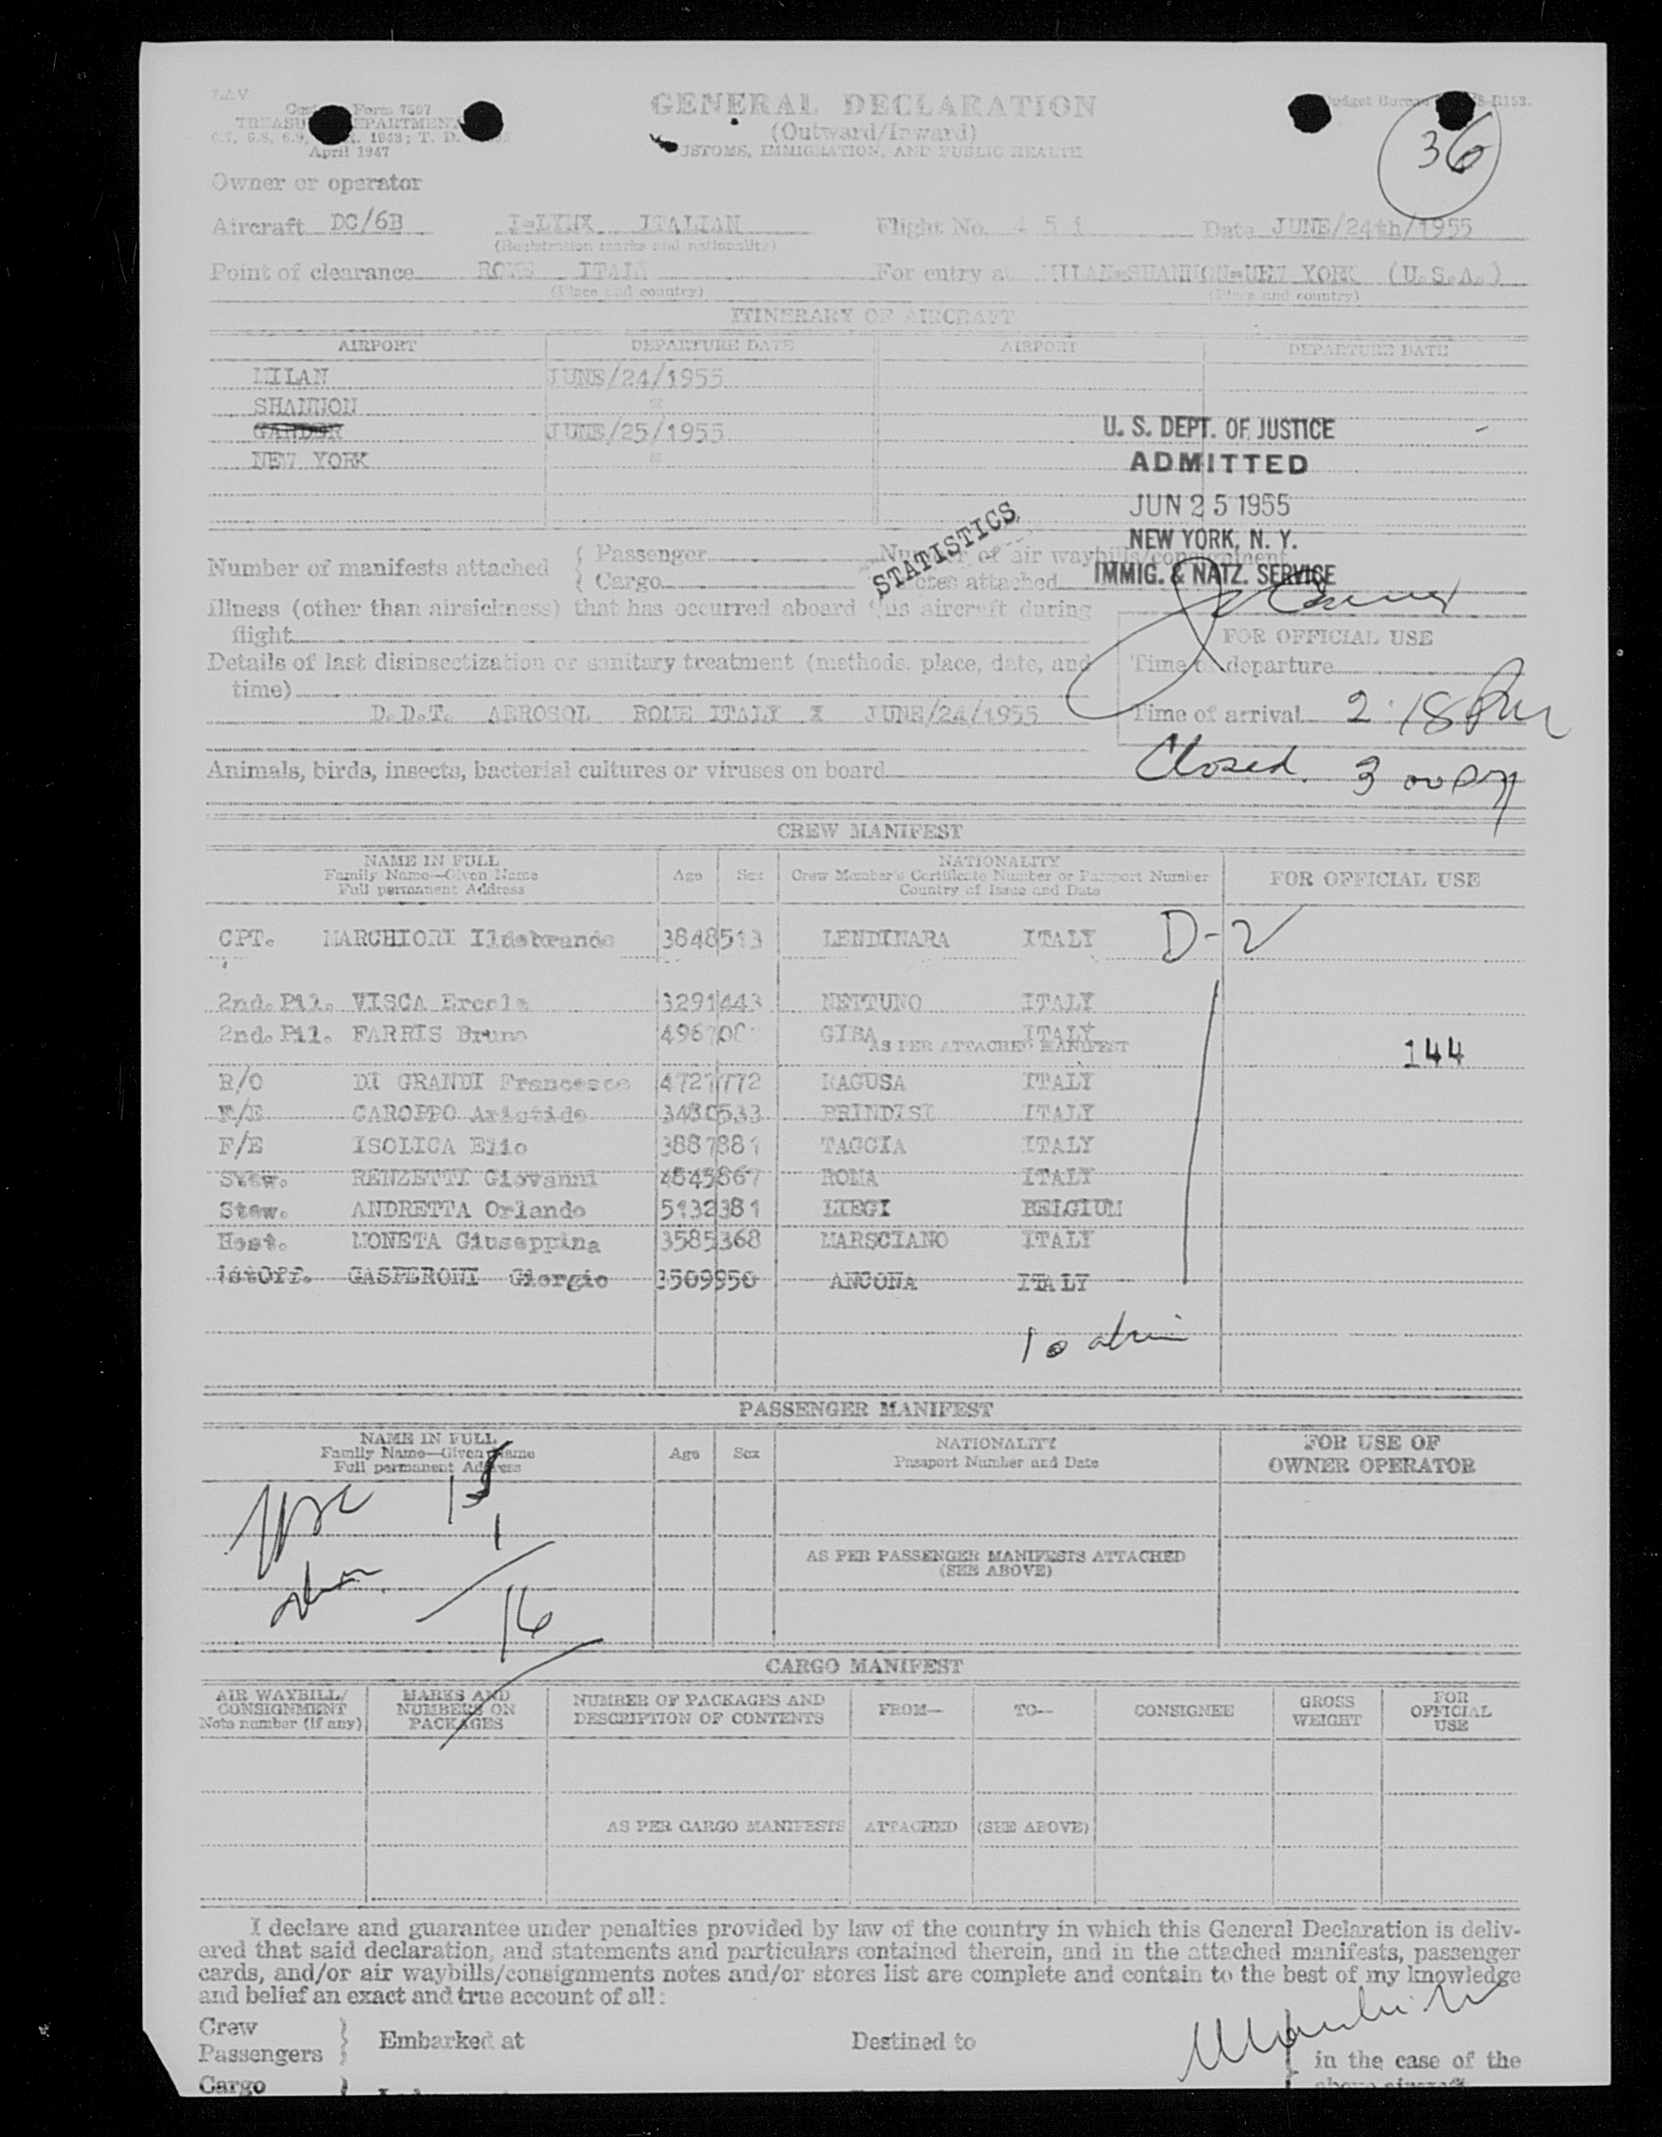 GENERAL DECLARATION
(Outward/Inward)
CUSTOMS, IMMIGRATION, AND PUBLIC HEALTH
Form 7507
April 1947
36
Owner or operator
Aircraft DC/6B I-LYNX ITALIAN Flight No. 4 5 1 Date JUNE/24th/1955
(Registration marks and nationality)
Point of clearance ROME ITALY For entry at MILAN-SHANNON-NEW YORK (U.S.A.)
(Place and country) (Place and country)
ITINERARY OF AIRCRAFT
AIRPORT DEPARTURE DATE AIRPORT DEPARTURE DATE
MILAN JUNE/24/1955
SHANNON "
GANDER JUNE/25/1955
NEW YORK "
U. S. DEPT. OF JUSTICE
ADMITTED
JUN 25 1955
NEW YORK, N. Y.
IMMIG. & NATZ. SERVICE
STATISTICS
Number of manifests attached { Passenger Number of air waybills/consignment
{ Cargo notes attached
Illness (other than airsickness) that has occurred aboard this aircraft during
flight
FOR OFFICIAL USE
Details of last disinsectization or sanitary treatment (methods, place, date, and
time)
Time of departure
D.D.T. AEROSOL ROME ITALY X JUNE/24/1955
Time of arrival 2:18 PM
Closed. 3 00 PM
Animals, birds, insects, bacterial cultures or viruses on board
CREW MANIFEST
NAME IN FULL
Family Name—Given Name
Full permanent Address
Age Sex
NATIONALITY
Crew Member's Certificate Number or Passport Number
Country of Issue and Date
FOR OFFICIAL USE
CPT. MARCHIORI Ildebrando 3848513 LENDINARA ITALY D-2
2nd.Pil. VISCA Ercole 3291443 NETTUNO ITALY
2nd.Pil. FARRIS Bruno GIBA ITALY
AS PER ATTACHED MANIFEST
144
R/O DI GRANDI Francesco 4727772 RAGUSA ITALY
F/E CAROPPO Aristide 3480533 BRINDISI ITALY
F/E ISOLICA Elio 3887881 TAGGIA ITALY
Stew. RENZETTI Giovanni 4845867 ROMA ITALY
Stew. ANDRETTA Orlando 5132381 LIEGI BELGIUM
Host. MONETA Giuseppina 3585368 MARSCIANO ITALY
1stOff. GASPERONI Giorgio 3509950 ANCONA ITALY
10 adm
PASSENGER MANIFEST
NAME IN FULL
Family Name—Given Name
Full permanent Address
Age Sex
NATIONALITY
Passport Number and Date
FOR USE OF
OWNER OPERATOR
15
1
16
AS PER PASSENGER MANIFESTS ATTACHED
(SEE ABOVE)
CARGO MANIFEST
AIR WAYBILL/
CONSIGNMENT
Note number (if any)
MARKS AND
NUMBERS ON
PACKAGES
NUMBER OF PACKAGES AND
DESCRIPTION OF CONTENTS
FROM—
TO—
CONSIGNEE
GROSS
WEIGHT
FOR
OFFICIAL
USE
AS PER CARGO MANIFESTS ATTACHED (SEE ABOVE)
I declare and guarantee under penalties provided by law of the country in which this General Declaration is deliv-
ered that said declaration, and statements and particulars contained therein, and in the attached manifests, passenger
cards, and/or air waybills/consignments notes and/or stores list are complete and contain to the best of my knowledge
and belief an exact and true account of all:
Crew
Passengers } Embarked at Destined to
in the case of the
Cargo
above aircraft